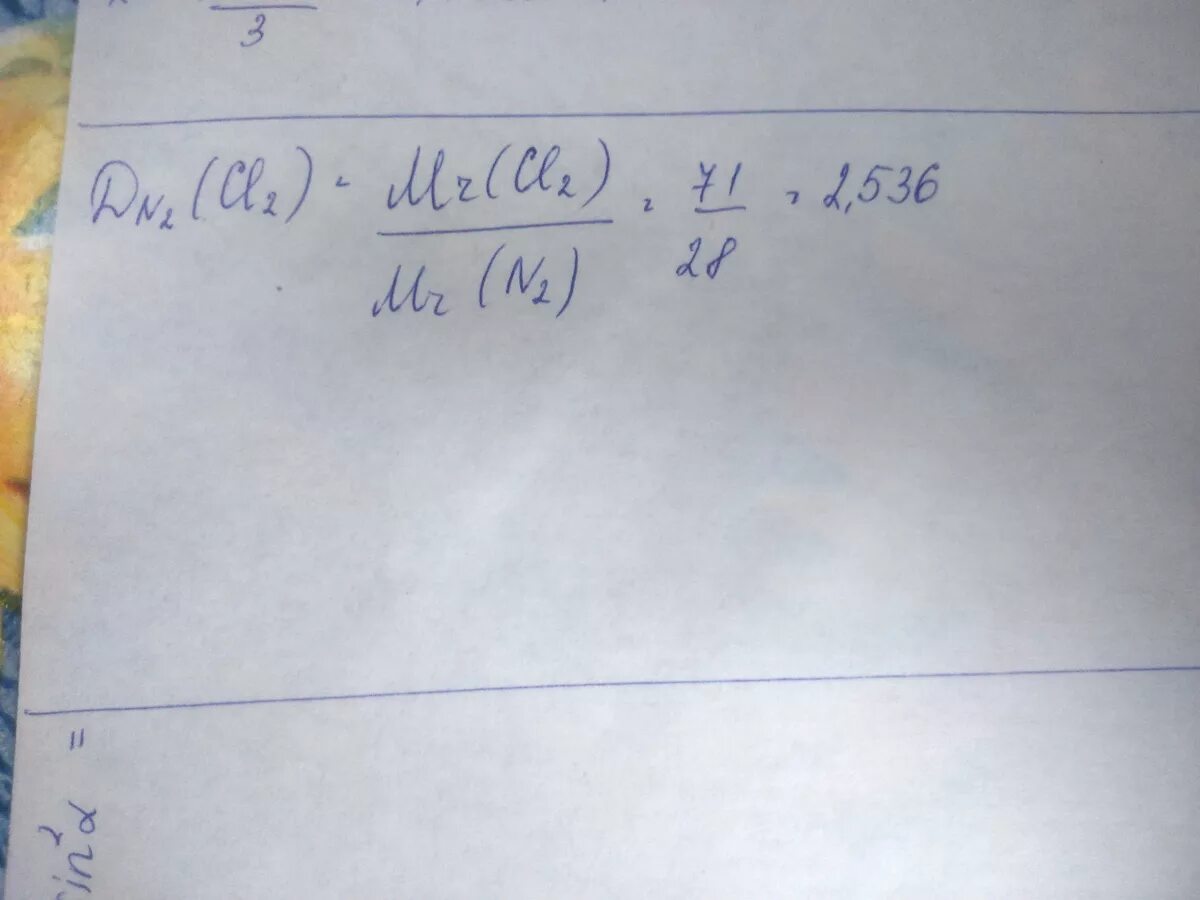 3
D_{N_2}(Cl_2) = \frac{Mr(Cl_2)}{Mr(N_2)} = \frac{71}{28} = 2,536
sin^2 α =